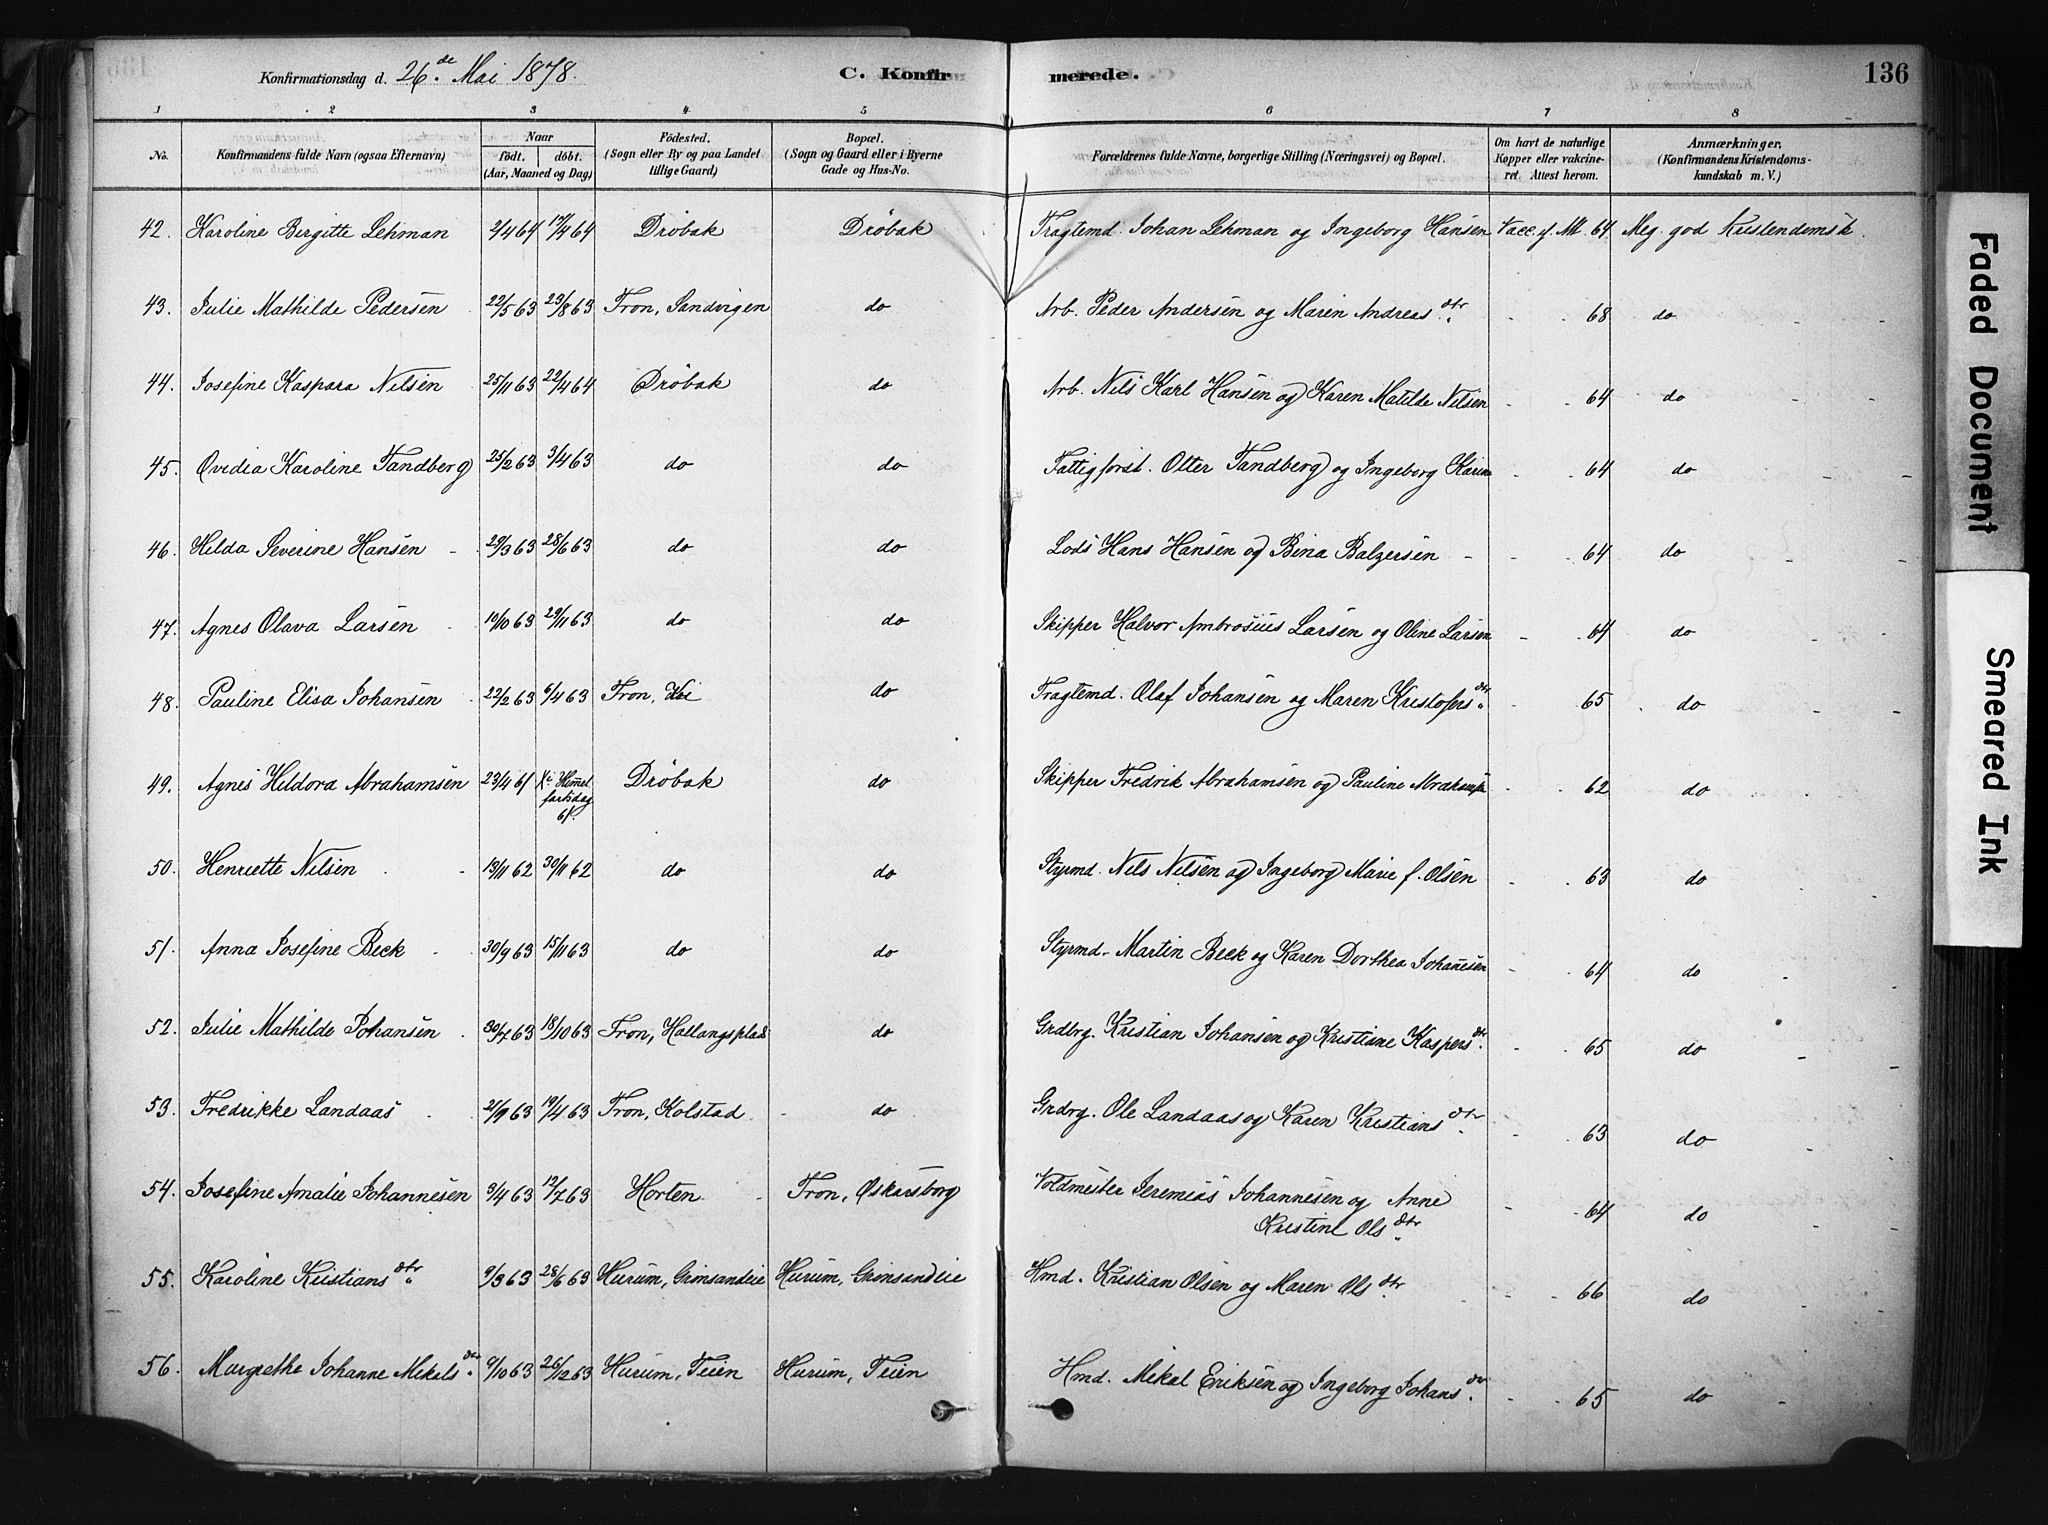 Konfirmationsdag d. 26.de Mai 1878. C. Konfirmerede. 136
1 2 3 4 5 6 7 8
No. Konfirmandens fulde Navn (ogsaa Efternavn) Naar født. døbt. (Aar, Maaned og Dag) Fødested. (Sogn eller By og paa Landet tillige Gaard) Bopæl. (Sogn og Gaard eller i Byerne Gade og Hus-No. Forældrenes fulde Navne, borgerlige Stilling (Næringsvei) og Bopæl. Om havt de naturlige Kopper eller vakcineret. Attest herom. Anmærkninger. (Konfirmandens Kristendomskundskab m. V.)
42. Karoline Birgitte Lehman 2/4 64 17/4 64 Drøbak Drøbak Fragtemd. Johan Lehman og Ingeborg Hansen Vacc. f. M. 64 Meg. god Kristendomsk.
43. Julie Mathilde Pedersen 22/5 63 23/8 63 Fron, Sandvigen do Arb. Peder Andersen og Maren Andreas dtr. - - 68 do -
44. Josefine Kaspara Nilsen 25/11 63 22/4 64 Drøbak do Arb. Nils Karl Hansen og Karen Matilde Nilsen - - 64 do - -
45. Ovidia Karoline Tandberg 25/2 63 3/4 63 do do Fattigforst. Otter Tandberg og Ingeborg Karine - - 64 do - -
46. Hilda Severine Hansen - 29/3 63 28/6 63 do do Lods Hans Hansen og Bina Balzersen - - - 64 do - -
47. Agnes Olava Larsen 10/10 63 29/11 63 do do Skipper Halvor Ambrosius Larsen og Oline Larsen - - 64 do - -
48. Pauline Elisa Johansen 22/2 63 6/4 63 Fron, do Fragtemd. Olaf Johansen og Maren Kristofers dtr. - 65 do -
49. Agnes Hildora Abrahamsen 23/4 61 Himmelfartsdag 61. Drøbak do Skipper Fredrik Abrahamsen og Pauline Abrahamsen - - 62 do - -
50. Henriette Nilsen - 13/11 62 30/11 62 do do Styrmd. Nils Nilsen og Ingeborg Marie f. Olsen - - 63 do - -
51. Anna Josefine Beck - 30/9 63 15/11 63 do do Styrmd. Martin Beck og Karen Dorthea Johannesen - - 64 do -
52. Julie Mathilde Johansen 30/7 63 18/10 63 Fron, Hallangsplads do Grdbrg. Kristian Johansen og Kristiane Kaspers dtr. - - 65 do -
53. Fredrikke Landaas 21/9 63 19/4 63 Fron, Kolstad - do Grdrg. Ole Landaas og Karen Kristians dtr. - - 63 do -
54. Josefine Amalie Johannesen 3/4 63 12/7 63 Horten - Fron, Oskarsborg Voldmester Jeremias Johannesen og Anne Kristine Ols dtr. - - 64 do -
55. Karoline Kristians dtr. 9/3 63 28/6 63 Hurum, Grimsandeie Hurum, Grimsandeie Hmd. Kristian Olsen og Maren Ols dtr. - - - 66 do -
56. Margrethe Johanne Mikals dtr. 9/10 63 26/12 63 Hurum, Teien Hurum, Teien Hmd. Mikal Eriksen og Ingeborg Johans dtr. - - 65 do -
Faded Document
Smeared Ink